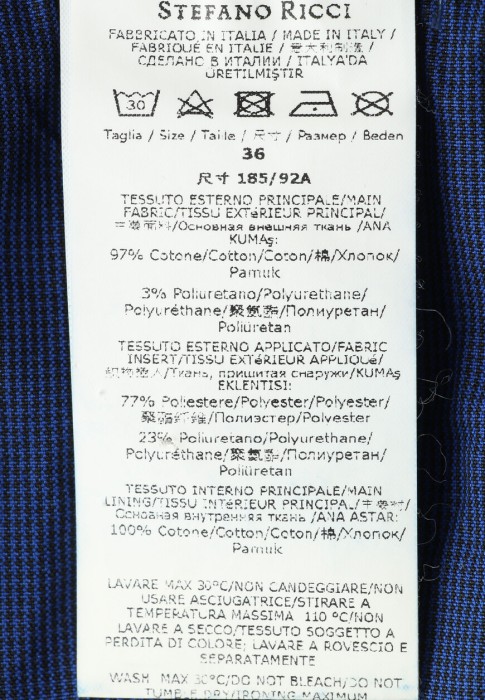 STEFANO RICCI
FABBRICATO IN ITALIA / MADE IN ITALY /
FABRIQUÉ EN ITALIE / 意大利制造 /
СДЕЛАНО В ИТАЛИИ / ITALYA'DA
ÜRETILMIŞTIR
30
Taglia / Size / Taille / 尺寸 / Размер / Beden
36
尺寸 185/92A
TESSUTO ESTERNO PRINCIPALE/MAIN
FABRIC/TISSU EXTéRIEUR PRINCIPAL/
主要面料/Основная внешняя ткань /ANA
KUMAş:
97% Cotone/Cotton/Coton/棉/Хлопок/
Pamuk
3% Poliuretano/Polyurethane/
Polyuréthane/聚氨酯/Полиуретан/
Poliüretan
TESSUTO ESTERNO APPLICATO/FABRIC
INSERT/TISSU EXTéRIEUR APPLIQUé/
/Ткань, пришитая снаружи/KUMAş
EKLENTISI:
77% Poliestere/Polyester/Polyester/
聚酯纤维/Полиэстер/Polyester
23% Poliuretano/Polyurethane/
Polyuréthane/聚氨酯/Полиуретан/
Poliüretan
TESSUTO INTERNO PRINCIPALE/MAIN
LINING/TISSU INTéRIEUR PRINCIPAL/
Основная внутренняя ткань /ANA ASTAR:
100% Cotone/Cotton/Coton/棉/Хлопок/
Pamuk
LAVARE MAX 30°C/NON CANDEGGIARE/NON
USARE ASCIUGATRICE/STIRARE A
TEMPERATURA MASSIMA 110 °C/NON
LAVARE A SECCO/TESSUTO SOGGETTO A
PERDITA DI COLORE; LAVARE A ROVESCIO E
SEPARATAMENTE
WASH MAX 30°C/DO NOT BLEACH/DO NOT
TUMBLE DRY/IRONING MAXIMUM